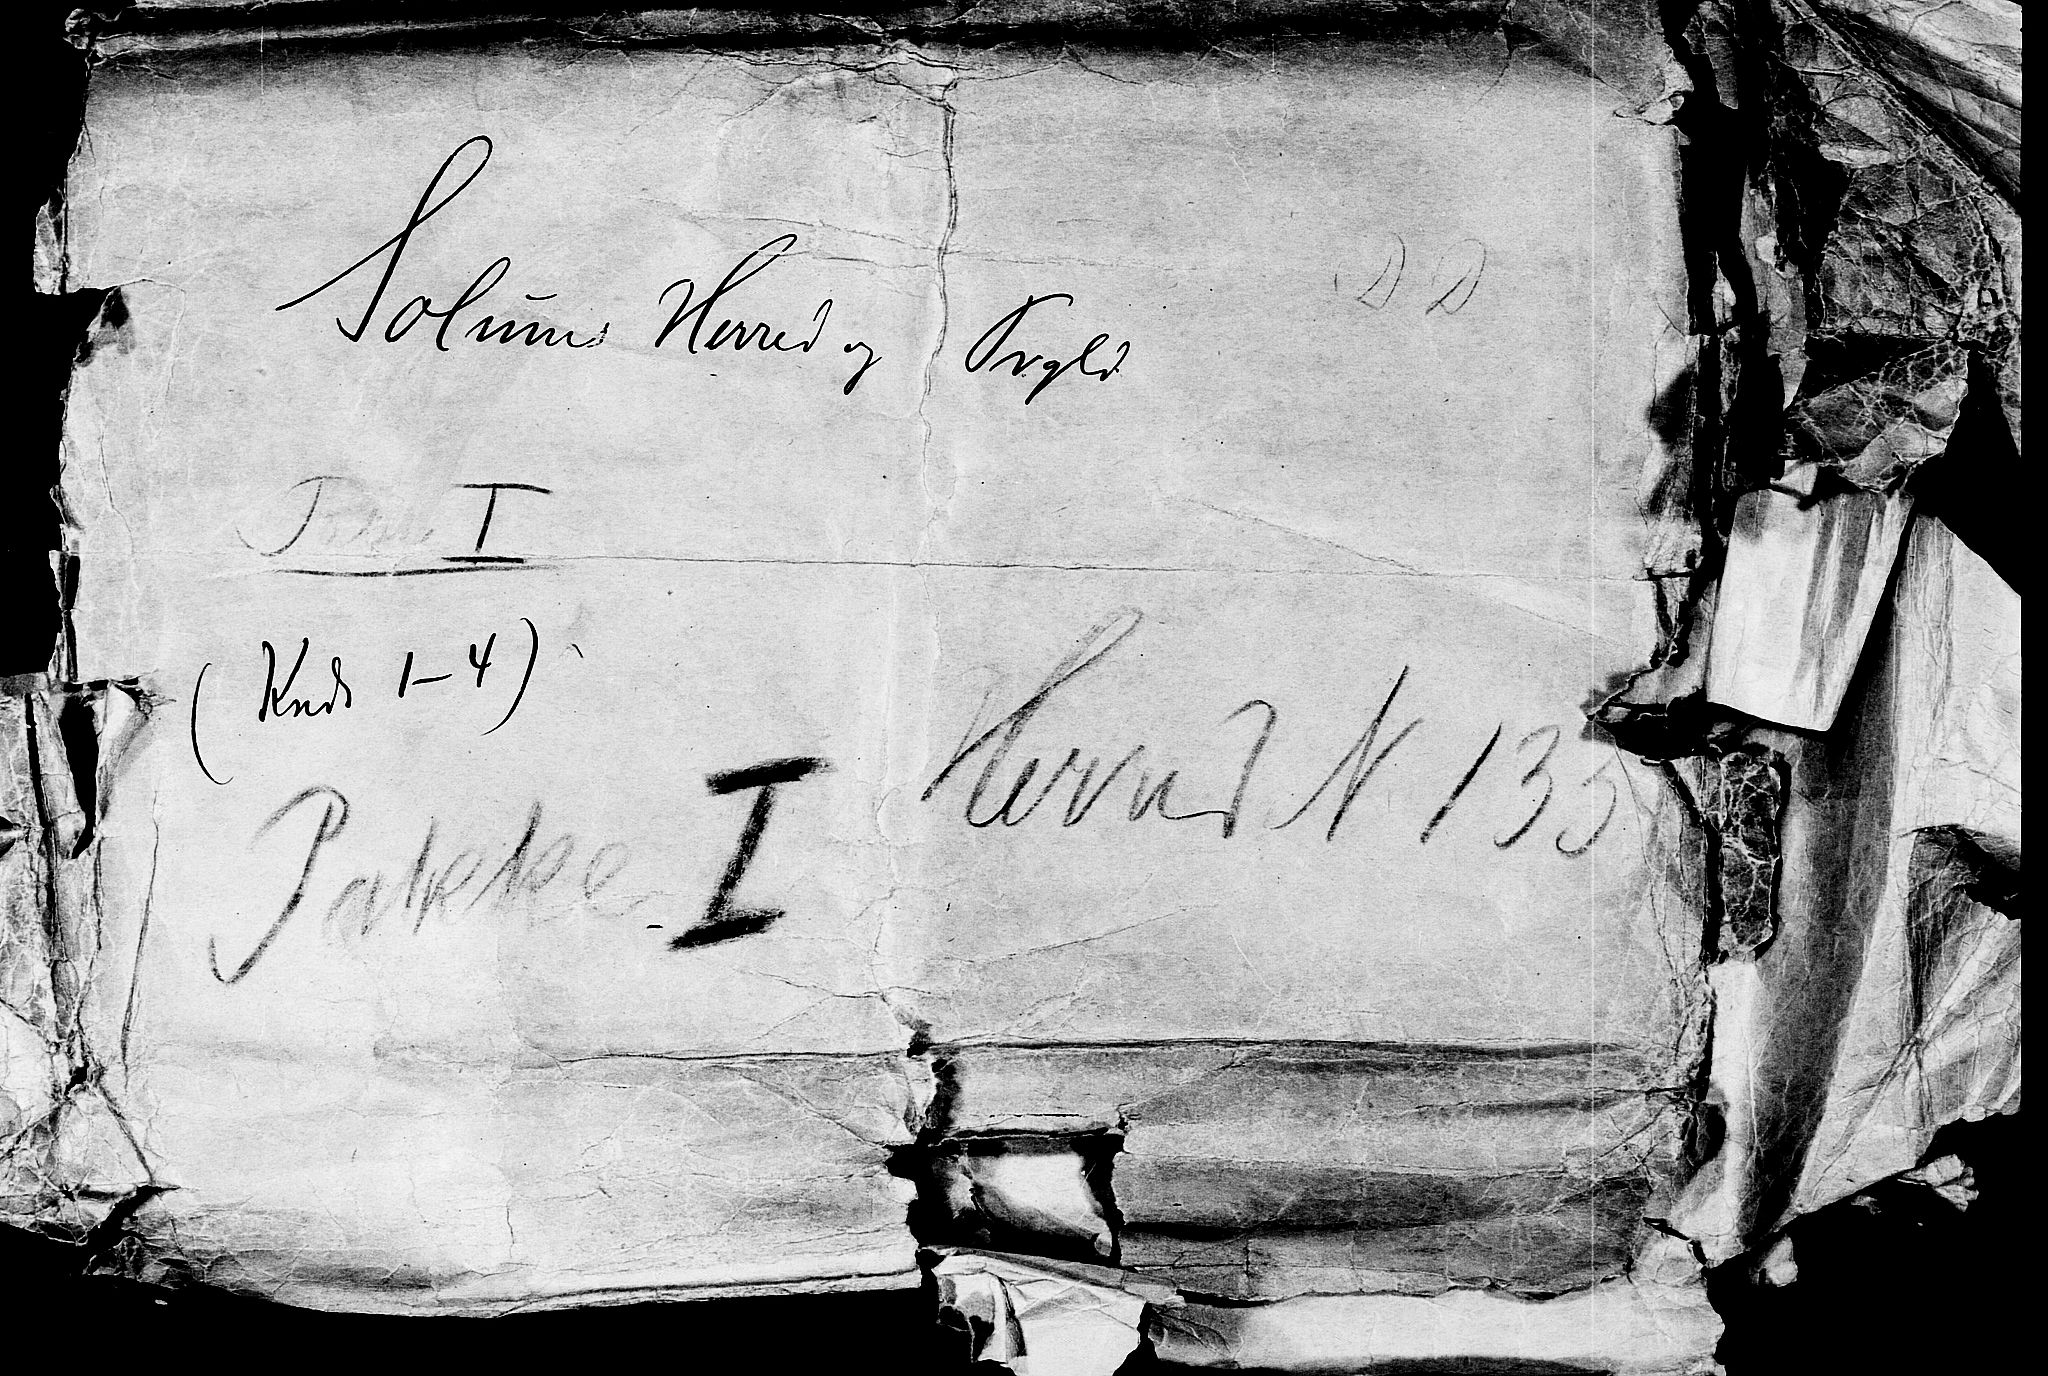 Solums Herred og Prgld
D D
Pakke I
(Kreds 1-4)
Herred N 135
Pakke I